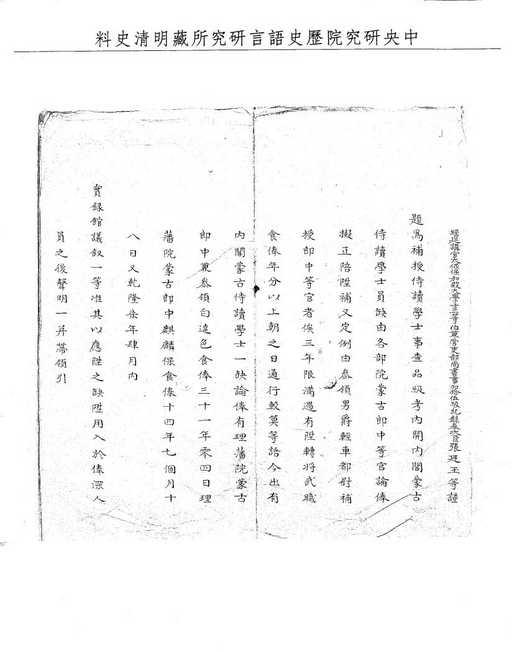 中央研究院歷史語言研究所藏明清史料
經筵講官太保保和殿大學士三等伯兼管吏部尚書事加拾伍級紀錄叁次臣張廷玉等謹
題為補授侍讀學士事查品級考內開內閣蒙古
侍讀學士員缺由各部院蒙古郎中等官論俸
擬正陪陞補又定例由叅領男爵輕車都尉補
授郎中等官者俟三年限滿遇有陞轉將武職
食俸年分以上朝之日通行較算等語今出有
內閣蒙古侍讀學士一缺論俸有理藩院蒙古
郎中兼叅領白達色食俸三十一年零四日理
藩院蒙古郎中麒麟保食俸十四年七個月十
八日又乾隆柒年肆月內
實錄館議敘一等准其以應陞之缺陞用入於俸深人
員之後聲明一并帶領引